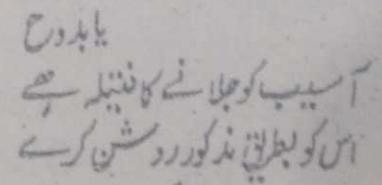 یا بدوح
آسیب کو جلانے کا فتیلہ ہے
اس کو بطریق مذکور روشن کرے